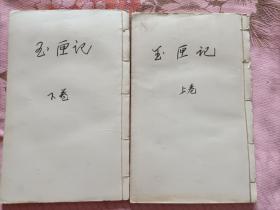 玉匣记
下卷
玉匣记
上卷